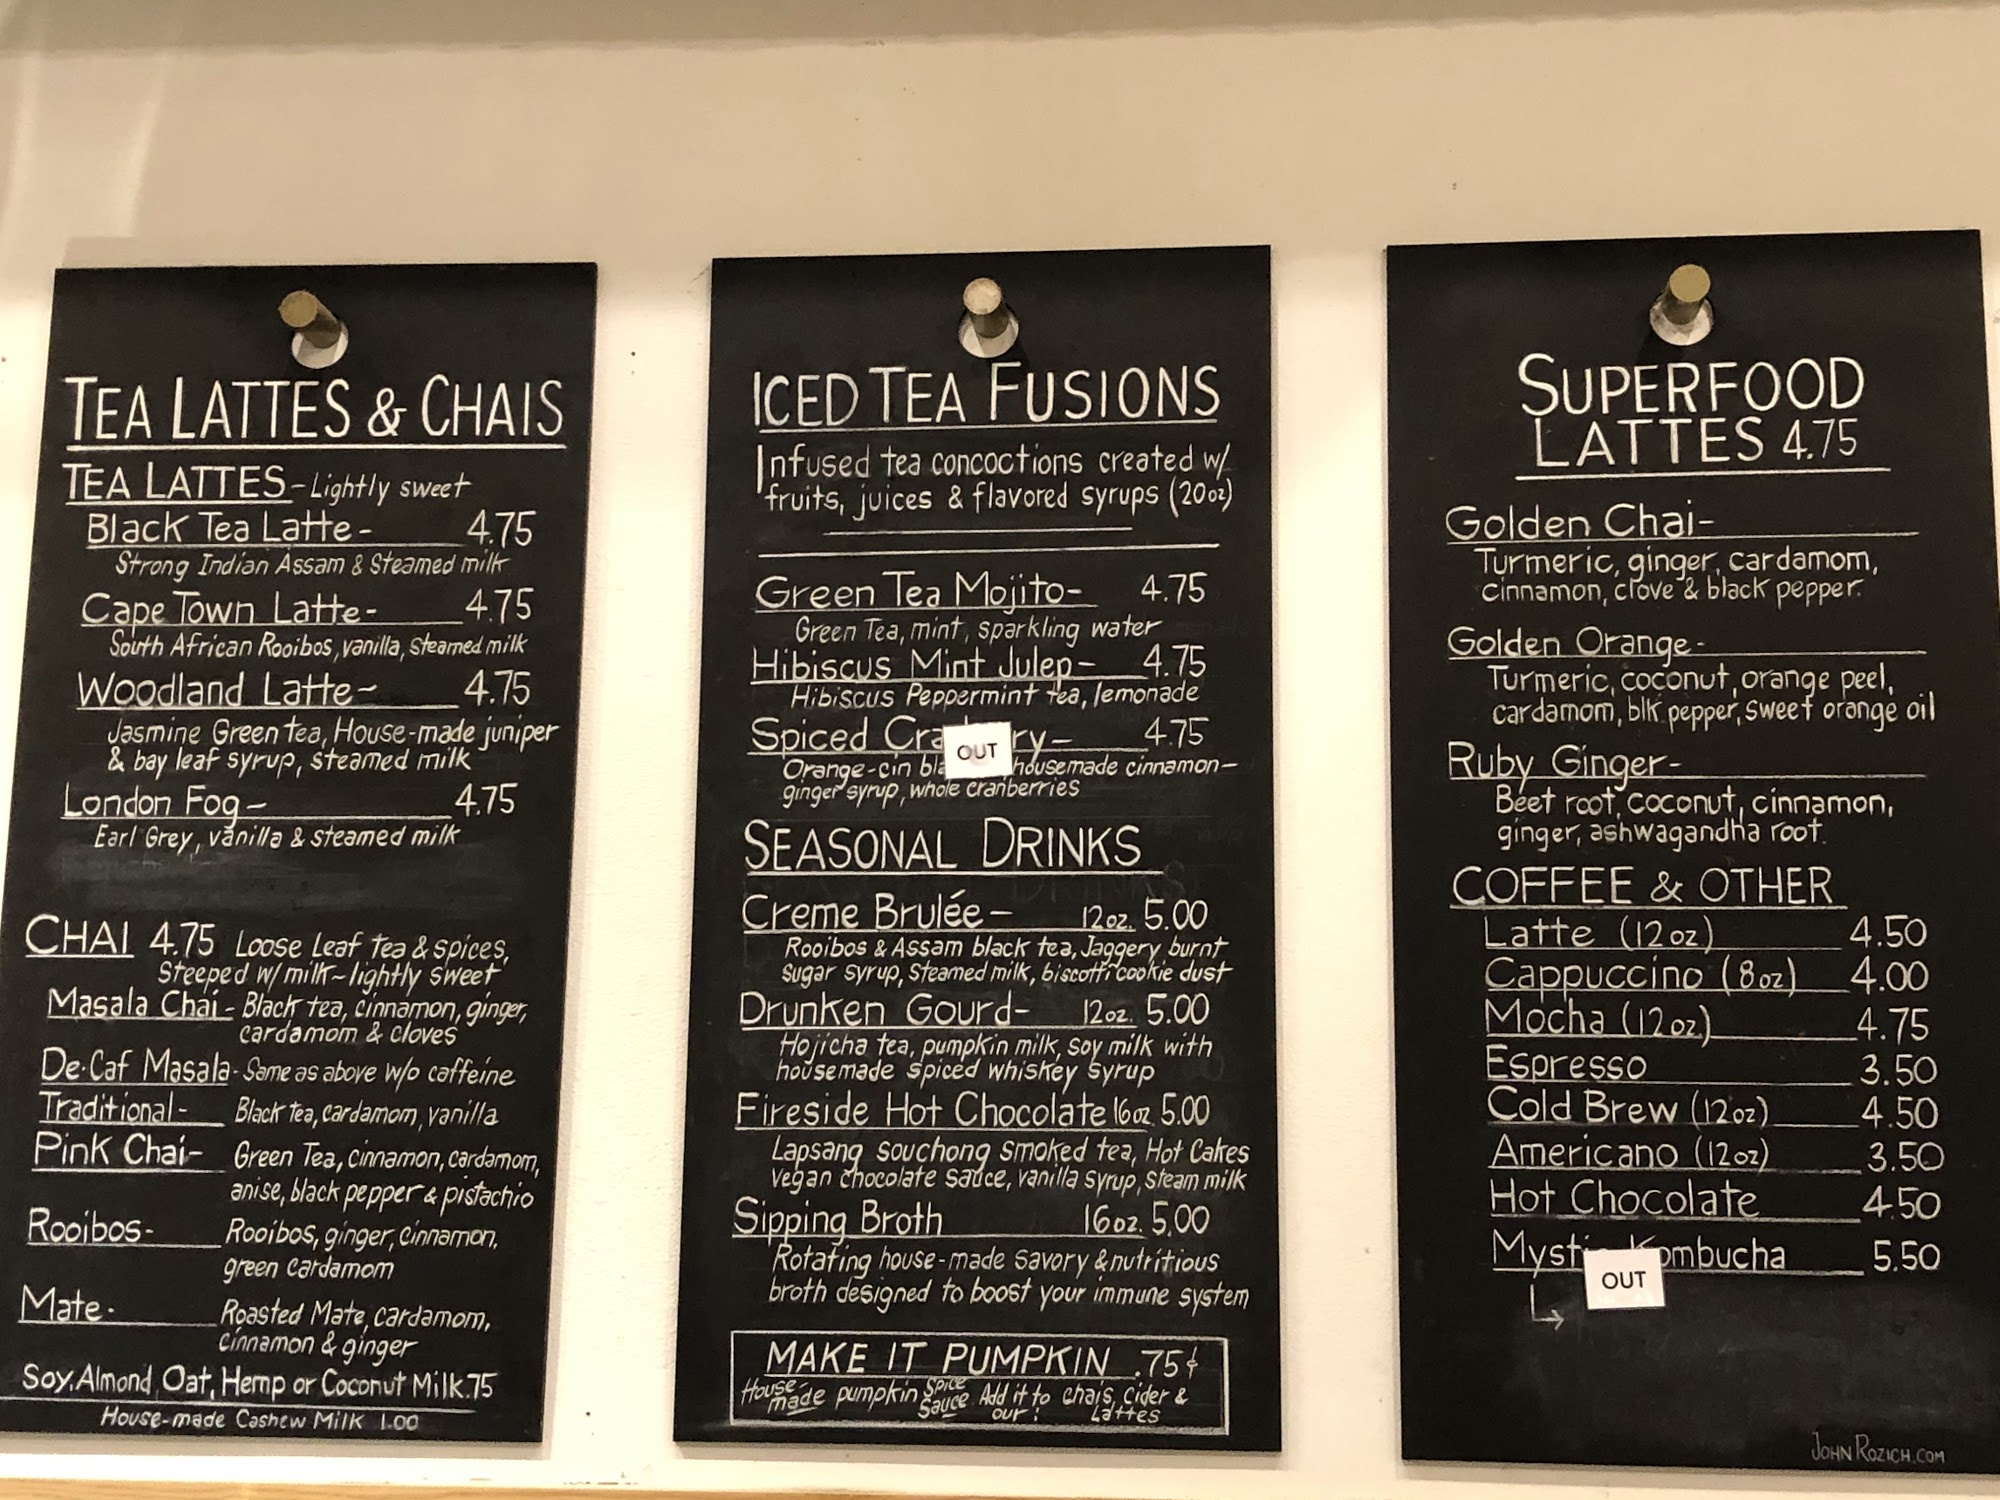 TEA LATTES & CHAIS
TEA LATTES - Lightly sweet
Black Tea Latte - 4.75
Strong Indian Assam & Steamed milk
Cape Town Latte - 4.75
South African Rooibos, vanilla, steamed milk
Woodland Latte - 4.75
Jasmine Green tea, House-made juniper
& bay leaf syrup, steamed milk
London Fog - 4.75
Earl Grey, vanilla & steamed milk
CHAI 4.75 Loose Leaf tea & spices,
Steeped w/ milk - lightly sweet
Masala Chai - Black tea, cinnamon, ginger,
cardamom & cloves
De-Caf Masala - Same as above w/o caffeine
Traditional - Black tea, cardamom, vanilla
Pink Chai - Green Tea, cinnamon, cardamom,
anise, black pepper & pistachio
Rooibos - Rooibos, ginger, cinnamon,
green cardamom
Mate - Roasted Mate, cardamom,
cinnamon & ginger
Soy, Almond, Oat, Hemp or Coconut Milk .75
House-made Cashew Milk 1.00
ICED TEA FUSIONS
Infused tea concoctions created w/
fruits, juices & flavored syrups (20oz)
Green Tea Mojito - 4.75
Green Tea, mint, sparkling water
Hibiscus Mint Julep - 4.75
Hibiscus Peppermint tea, lemonade
Spiced Cra ry - 4.75
OUT
Orange-cin bla housemade cinnamon-
ginger syrup, whole cranberries
SEASONAL DRINKS
Creme Brulée - 12oz. 5.00
Rooibos & Assam black tea, Jaggery burnt
sugar syrup, Steamed milk, biscotti cookie dust
Drunken Gourd - 12oz. 5.00
Hojicha tea, pumpkin milk, soy milk with
housemade spiced whiskey syrup
Fireside Hot Chocolate 16oz. 5.00
Lapsang souchong smoked tea, Hot Cakes
vegan chocolate sauce, vanilla syrup, steam milk
Sipping Broth 16oz. 5.00
Rotating house-made savory & nutritious
broth designed to boost your immune system
MAKE IT PUMPKIN .75¢
House-made pumpkin Spice Sauce Add it to our: chais, cider & Lattes
SUPERFOOD
LATTES 4.75
Golden Chai -
Turmeric, ginger, cardamom,
cinnamon, clove & black pepper.
Golden Orange -
Turmeric, coconut, orange peel,
cardamom, blk pepper, sweet orange oil
Ruby Ginger -
Beet root, coconut, cinnamon,
ginger, ashwagandha root.
COFFEE & OTHER
Latte (12oz) 4.50
Cappuccino (8oz) 4.00
Mocha (12oz.) 4.75
Espresso 3.50
Cold Brew (12oz) 4.50
Americano (12oz) 3.50
Hot Chocolate 4.50
Mystic Kombucha 5.50
OUT
JOHNROZICH.COM